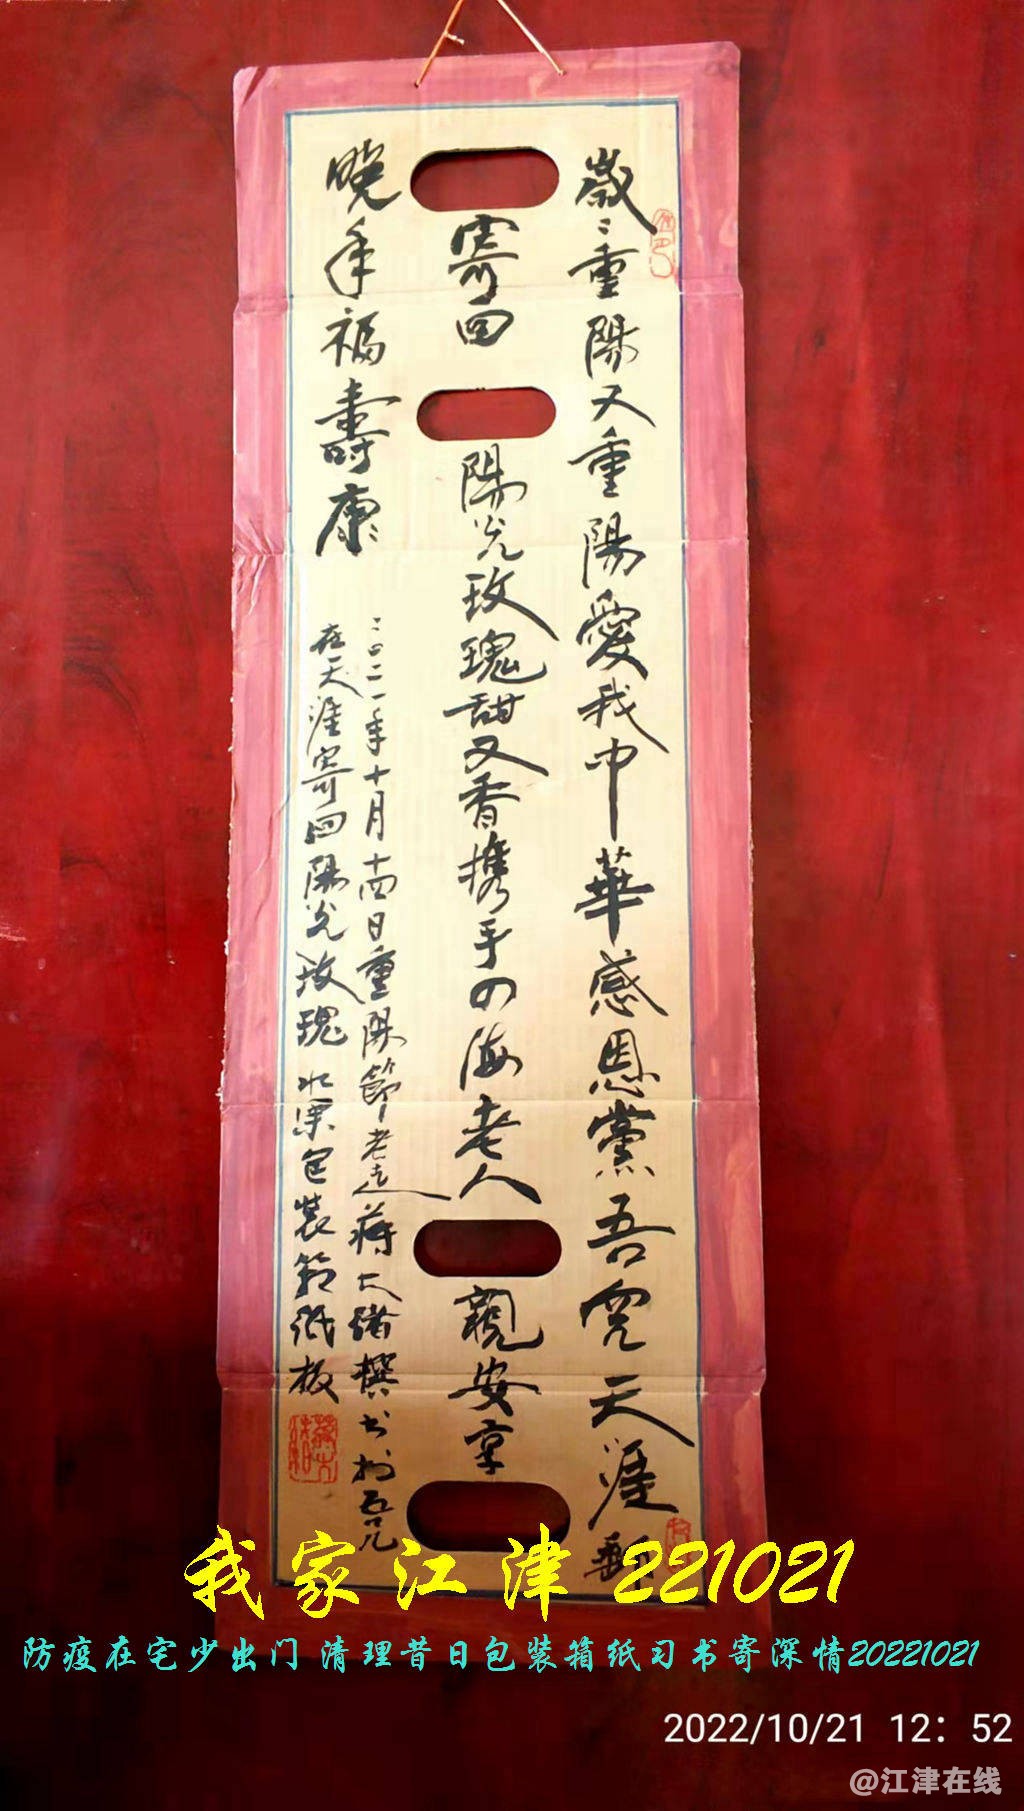 歲〻重陽又重陽愛我中華感恩黨吾兒天涯郵
寄回陽光玫瑰甜又香携手の海老人親安享
晚年福壽康〻
二〇二一年十月十四日重陽節老近蔣大緒撰书於五〇几
在天涯寄回陽光玫瑰水果包装箱纸板
我家江津 221021
防疫在宅少出门 清理昔日包装箱纸习书寄深情20221021
2022/10/21 12：52
@江津在线